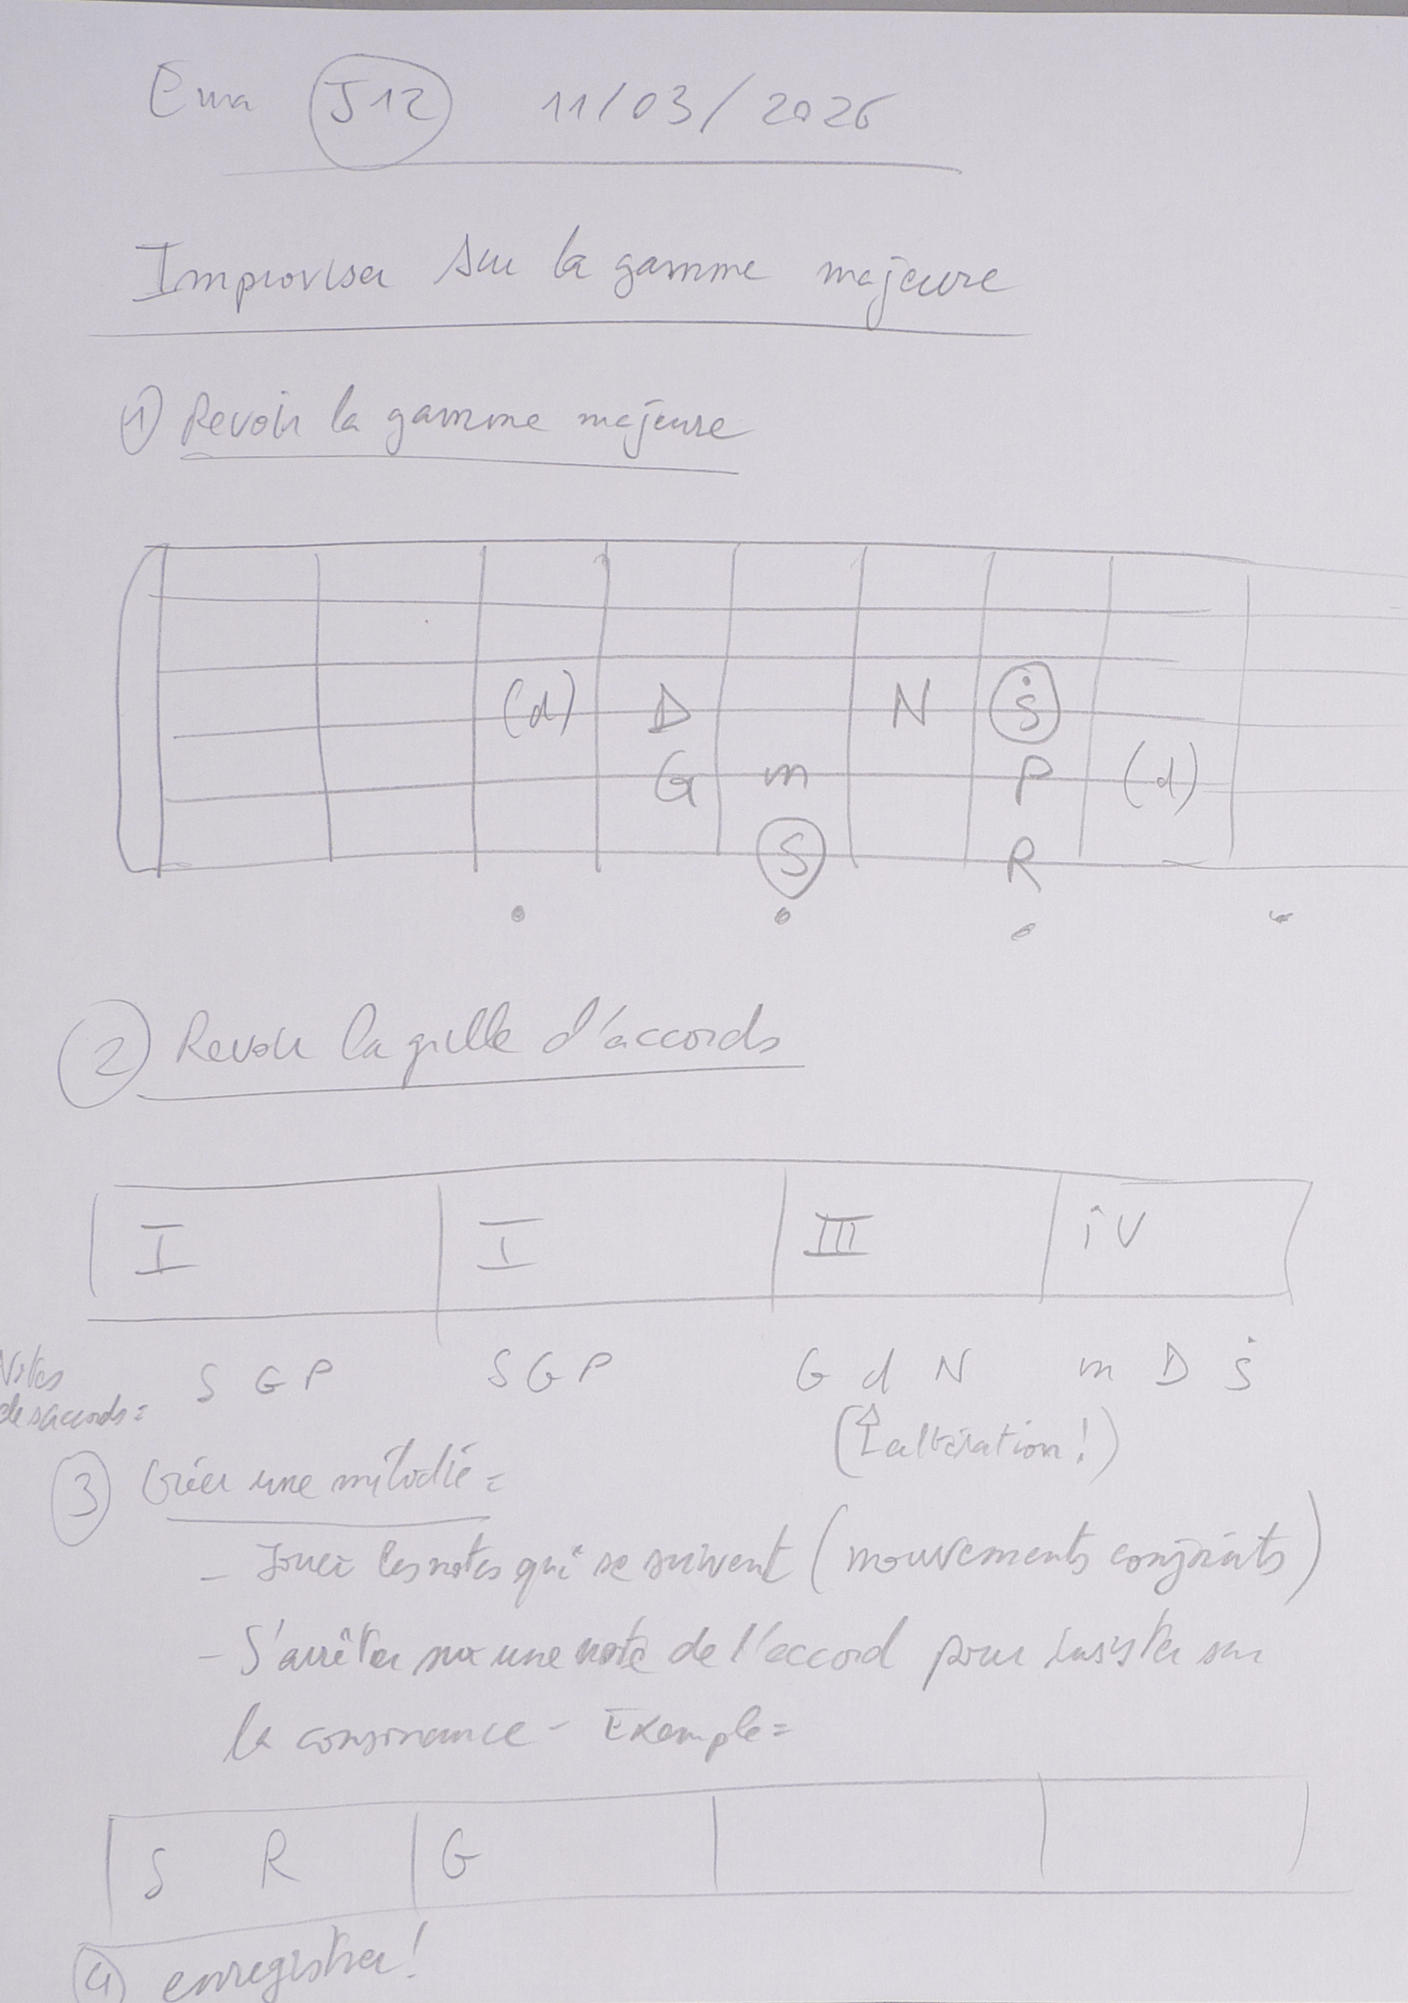 Ema J12 11/03/2026
Improviser sur la gamme majeure
1 Revoir la gamme majeure
(d) D N Ṡ
G m P (d)
S R
2 Revoir la grille d'accords
I I III iV
Notes des accords = S G P S G P G d N m D Ṡ
(↑ altération !)
3 Créer une mélodie =
- Jouer les notes qui se suivent (mouvements conjoints)
- S'arrêter sur une note de l'accord pour insister sur
la consonance - Exemple =
S R G
4 enregistrer !